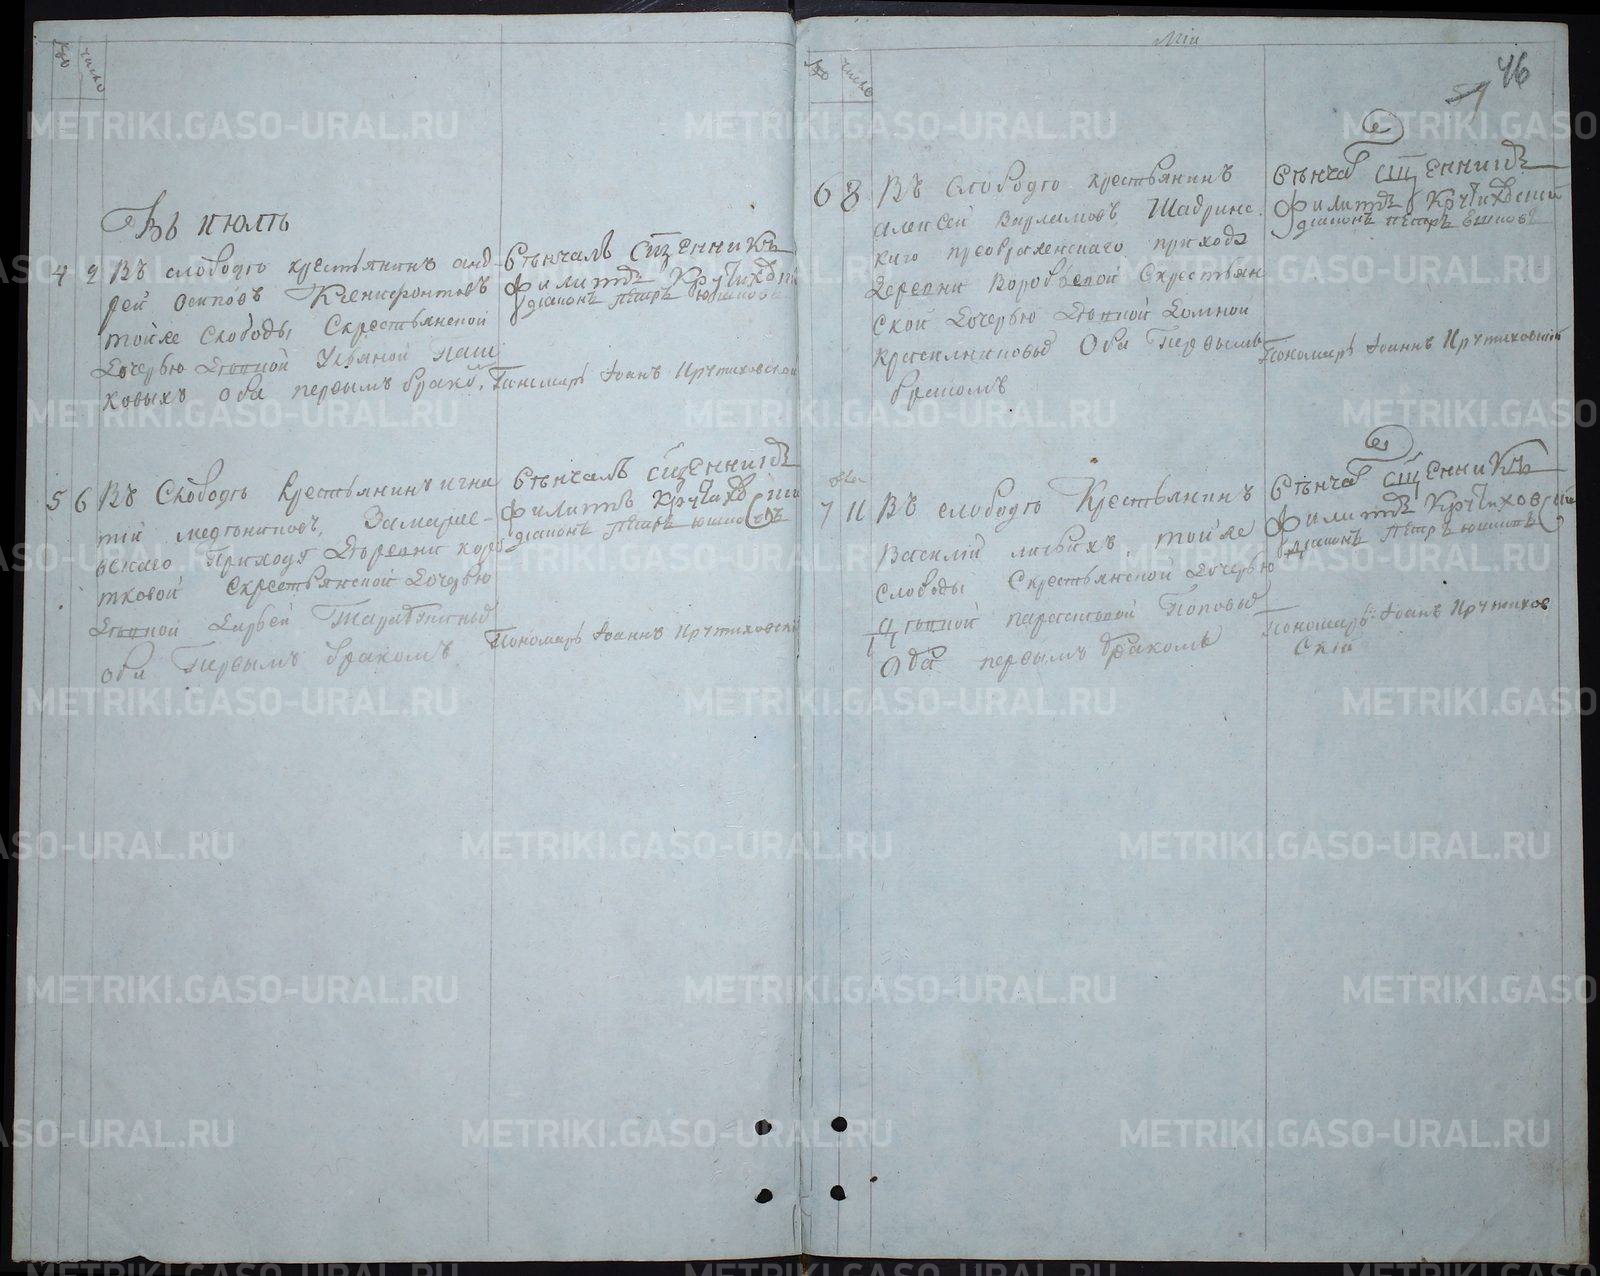 №
число
Въ июлѣ
4 9 Въ слободѣ крестьянинъ анд
рей осиповъ Ксенофонтовъ
тойже слободы Скрестьянской
дочерью дѣвкой Ульяной Паш
ковыхъ оба первымъ бракѡ
Вѣнчалъ сщенникъ
филиппъ Крутиховскій
діаконъ петръ
Пономарь Іоанъ Крутиховской
5 6 Въ Слободѣ Крестьянинъ игна
тій Замарае-
вскаго Прихода Деревни коро
тковой Скрестьянской дочерью
Дѣвкой Дарьей
оба Первымъ бракомъ
Вѣнчалъ сщенникъ
филиппъ Крутиховскій
діаконъ петръ
Пономарь Іоаннъ Крутиховскій
Min
46
№
число
6 8 Въ Слободѣ крестьянинъ
алексей Варламовъ Шадринс
каго преображенскаго прихода
деревни Воробьевой Скрестьян
ской дочерью дѣвкой Домной
Красильниковыхъ Оба Первымъ
бракомъ
Вѣнча сщенникъ
филиппъ Крутиховскій
діаконъ петръ
Пономарь Іоаннъ Крутиховскій
7 11 Въ слободѣ Крестьянинъ
Василій тойже
слободы Скрестьянской дочерью
дѣвкой парасковьей Поповыхъ
Оба первымъ бракомъ
Вѣнча сщенникъ
филиппъ Крутиховскій
діаконъ петръ
Пономарь Іоанъ Крутихов
Скій
METRIKI.GASO-URAL.RU